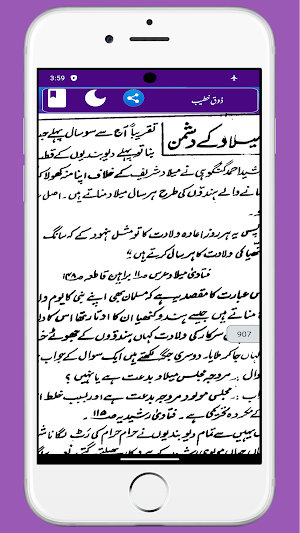 3:59
ذوق خطیب
میلاد کے دشمن
تقریباً آج سے سو سال پہلے جب
بنا تو پہلے دیوبندیوں کے قطب
رشید احمد گنگوہی نے میلاد شریف کے خلاف اپنا منہ کھولا
مانے والے ہندوؤں کی طرح ہر سال میلاد مناتے ہیں۔ اصل
پس یہ ہر روز اعادہ ولادت کا تو مثل ہنود کے کہ سانگ
کنھیا کی ولادت کا ہر سال کرتے ہیں
فتاویٰ میلاد عرس براہین قاطعہ ص ۱۴۸
اس عبارت کا مقصد یہ ہے کہ مسلمان بھی اپنے نبی کا یوم
مناتے ہیں جیسے ہندو کنھیا ان کا اوتار تھا اس کا
سرکار کی ولادت کہاں ہندوؤں کے جھوٹے
907
جا کر ملایا۔ دوسری جگہ لکھتے ہیں ایک سوال کے جواب
سوال۔ مروجہ مجلس میلاد بدعت ہے یا نہیں ؟
جواب۔ مجلس مولود مروجہ بدعت ہے اور بسبب خلط
مکروہ تحریمی ہے۔ فتاویٰ رشیدیہ ص ۱۱۵
یہیں سے تمام دیوبندیوں نے حرام حرام کی رٹ لگانا